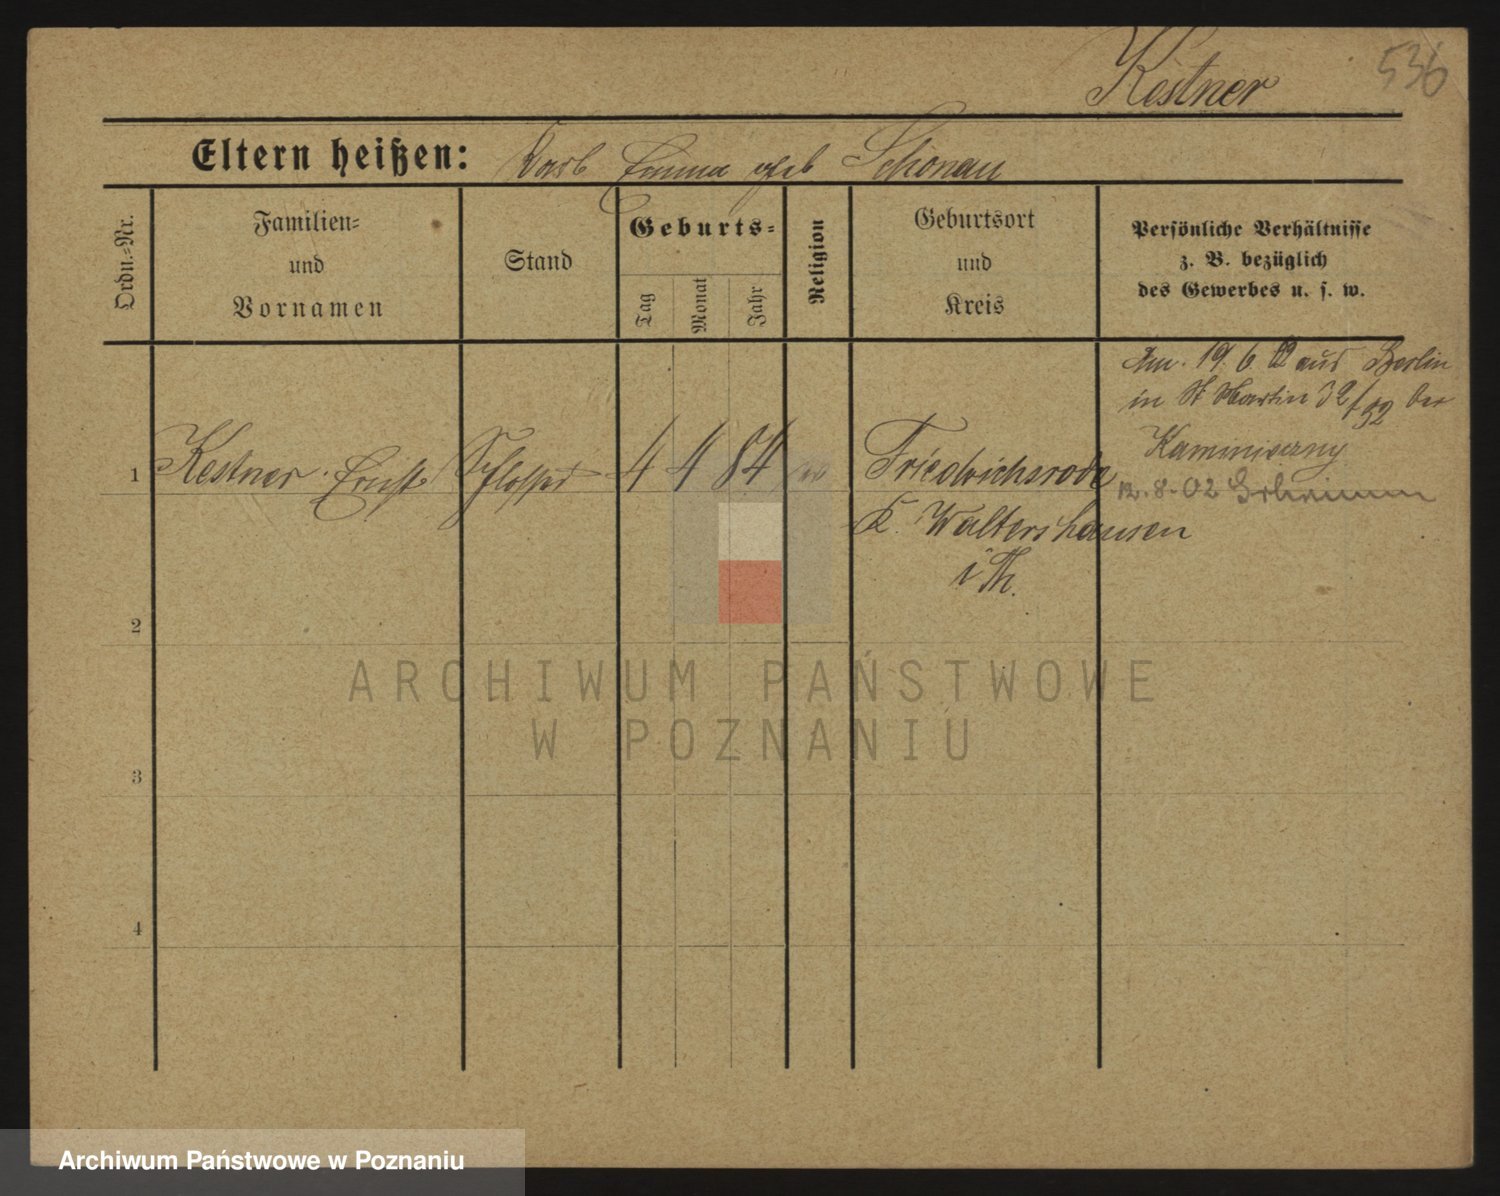 Kestner 536
Eltern heißen: Emma geb Schönau
Ordn.-Nr.
Familien=
und
Vornamen
Stand
Geburts=
Tag
Monat
Jahr
Religion
Geburtsort
und
Kreis
Persönliche Verhältnisse
z. B. bezüglich
des Gewerbes u. s. w.
Am. 19. 6. 02 aus Berlin
in St Martin 32/52 bei
1 Kestner Ernst Schlosser 4 4 84 Friedrichsrode
Kaminiarzny
12.8.02
K. Waltershausen
i Th.
2
3
4
ARCHIWUM PAŃSTWOWE
W POZNANIU
Archiwum Państwowe w Poznaniu